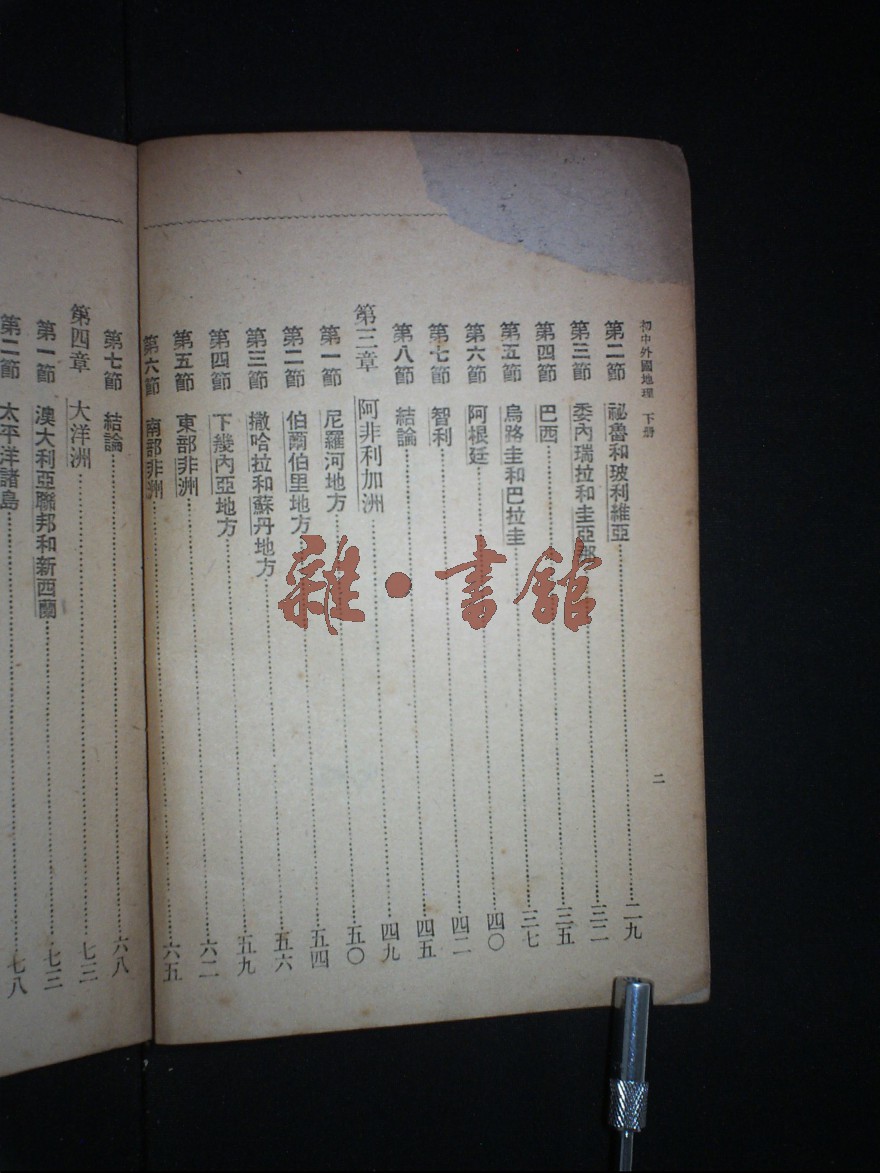 初中外國地理 下册
二
第二節 祕魯和玻利維亞 二九
第三節 委內瑞拉和圭亞那 三二
第四節 巴西 三五
第五節 烏路圭和巴拉圭 三七
第六節 阿根廷 四〇
第七節 智利 四二
第八節 結論 四五
第三章 阿非利加洲 四九
第一節 尼羅河地方 五〇
第二節 伯爾伯里地方 五四
第三節 撒哈拉和蘇丹地方 五六
第四節 下幾內亞地方 五九
第五節 東部非洲 六二
第六節 南部非洲 六五
第七節 結論 六八
第四章 大洋洲 七三
第一節 澳大利亞聯邦和新西蘭 七三
第二節 太平洋諸島 七八
雜·書館